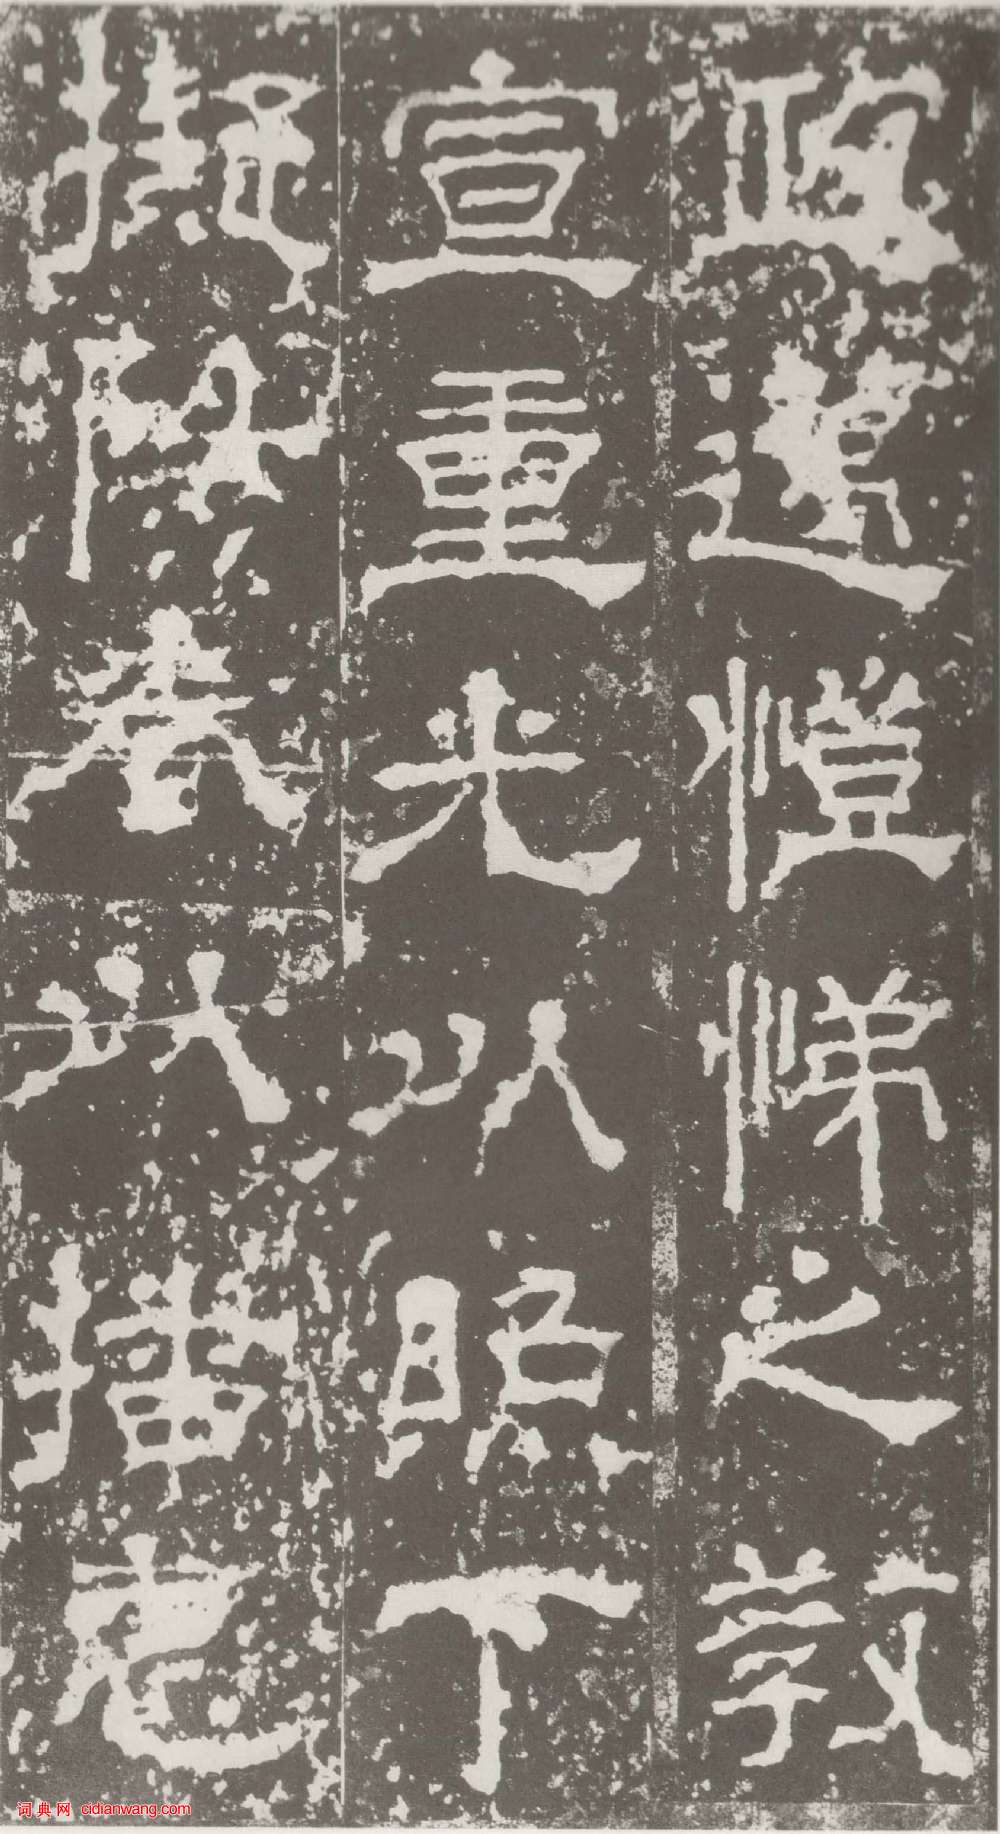 政遵愷悌之教
宣重光以照下
擬陽春以播惠
词典网 cidianwang.com